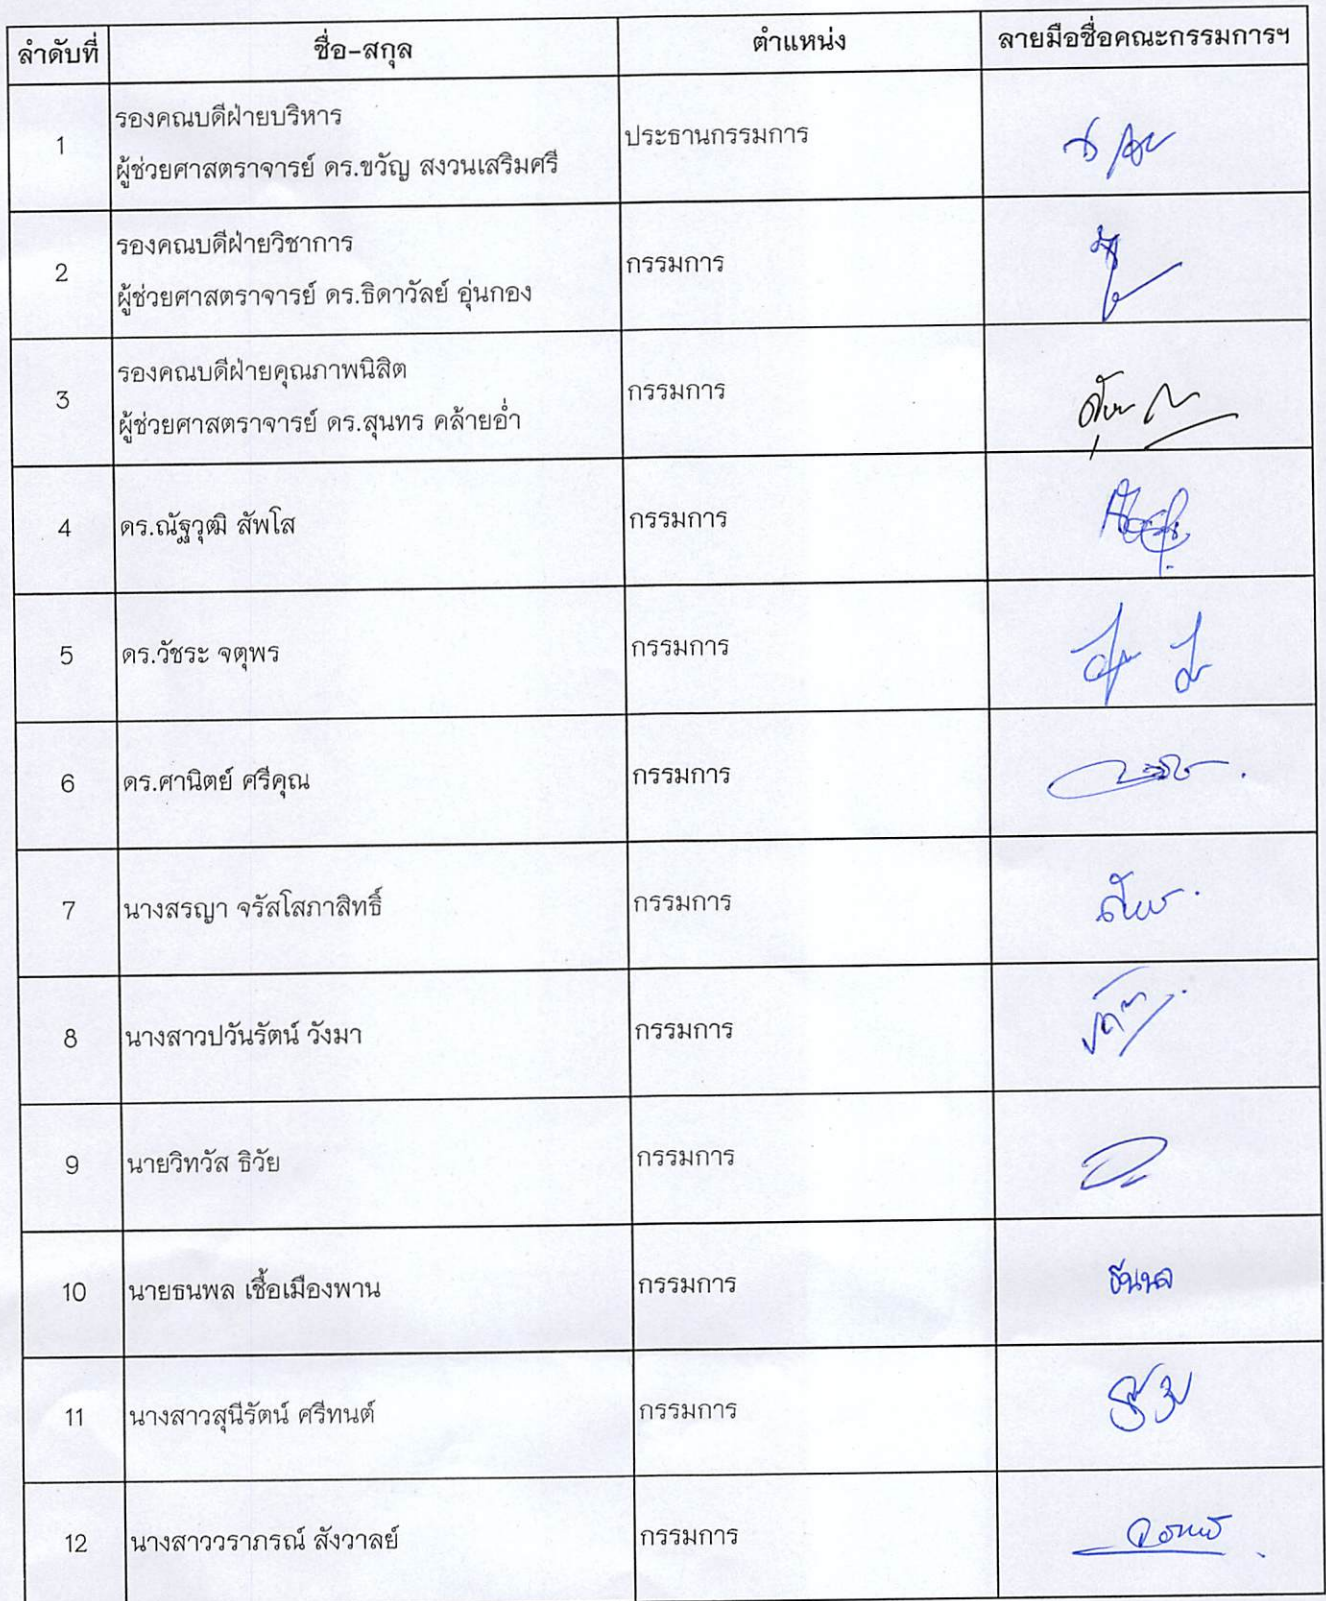 ลำดับที่ ชื่อ-สกุล ตำแหน่ง ลายมือชื่อคณะกรรมการฯ
รองคณบดีฝ่ายบริหาร
1 ประธานกรรมการ
ผู้ช่วยศาสตราจารย์ ดร.ขวัญ สงวนเสริมศรี
รองคณบดีฝ่ายวิชาการ
2 กรรมการ
ผู้ช่วยศาสตราจารย์ ดร.ธิดาวัลย์ อุ่นกอง
รองคณบดีฝ่ายคุณภาพนิสิต
3 กรรมการ
ผู้ช่วยศาสตราจารย์ ดร.สุนทร คล้ายอ่ำ
4 ดร.ณัฐวุฒิ สัพโส กรรมการ
5 ดร.วัชระ จตุพร กรรมการ
6 ดร.ศานิตย์ ศรีคุณ กรรมการ
7 นางสรญา จรัสโสภาสิทธิ์ กรรมการ
8 นางสาวปวันรัตน์ วังมา กรรมการ
9 นายวิทวัส ธิวัย กรรมการ
10 นายธนพล เชื้อเมืองพาน กรรมการ
11 นางสาวสุนีรัตน์ ศรีทนต์ กรรมการ
12 นางสาววราภรณ์ สังวาลย์ กรรมการ